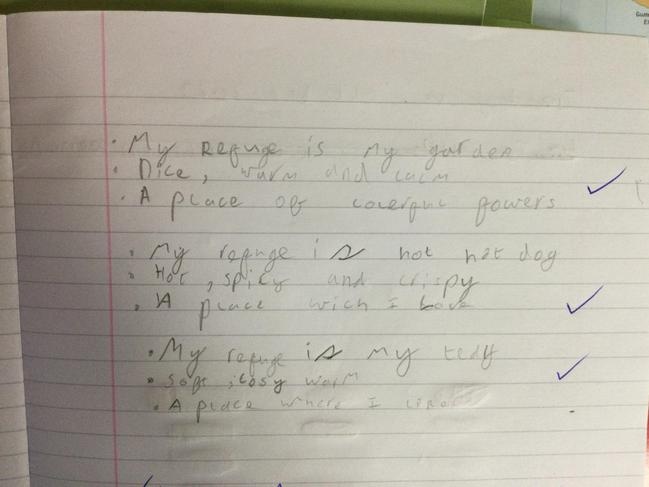 • My Refuge is my garden
• Nice, warm and calm
• A place of colerful flowers
• My refuge is hot hot dog
• Hot, spicy and crispy
• A place wich I love
• My refuge is my tedy
• Soft, cosy warm
• A place where I